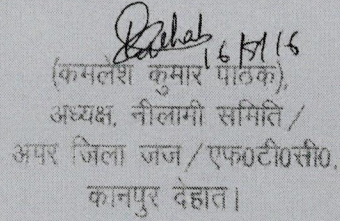 16/5/16
(कमलेश कुमार पाठक),
अध्यक्ष, नीलामी समिति /
अपर जिला जज / एफ0टी0सी0,
कानपुर देहात।